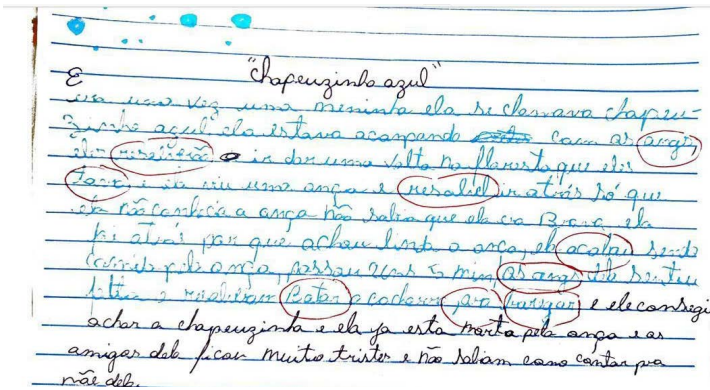 "chapeuzinho azul"
Era uma vez uma meninha ela se chamava chapeu-
zinho azul ela estava acampando com as angi
eles ir dar uma volta na floresta que eles
tava e ia viu uma onça e resolel ir atrás só que
ela não conhecia a onça não sabia que ela era Brava, ela
foi atrás por que achou linda a onça, ela acabou sendo
comida pela onça, passou uns 5 min, as angi dela sentiu
falta e resolveram Botar o cachorro pra e ele consegi
achar a chapeuzinho e ela ja esta morta pela onça e as
amigas dela ficou muito triste e não sabiam como contar pra
mãe dela.